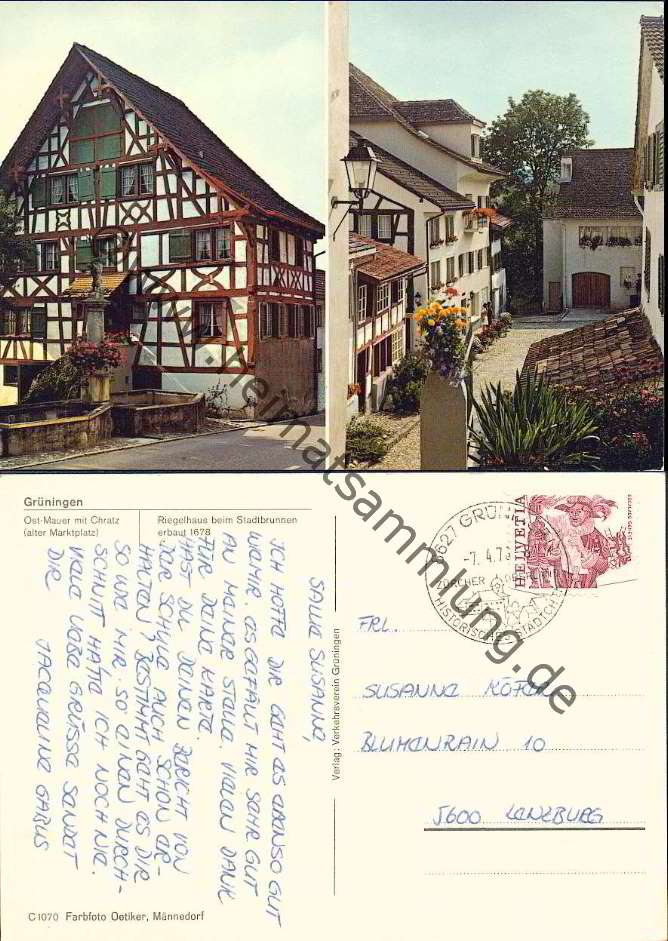 Grüningen
Ost-Mauer mit Chratz
(alter Marktplatz)
Riegelhaus beim Stadtbrunnen
erbaut 1678
SALUE SUSANNE,
ICH HOFFE DIR GEHT ES EBENSO GUT
WIE MIR. ES GEFÄLLT MIR SEHR GUT
AN MEINER STELLE. VIELEN DANK
FÜR DEINE KARTE.
HAST DU DEINEN BERICHT VON
DER SCHULE AUCH SCHON ER-
HALTEN? BESTIMMT GEHT ES DIR
SO WIE MIR. SO EINEN DURCH-
SCHNITT HATTE ICH NOCH NIE.
VIELE LIEBE GRÜSSE SENDET
DIR
JACQUELINE
Verlag: Verkehrsverein Grüningen
8627 GRÜNINGEN
-7.4.78
ZÜRCHER
HISTORISCHES STÄDTCHEN
HELVETIA
FRL.
SUSANNE
BLUMENRAIN 10
5600 LENZBURG
C 1070 Farbfoto Oetiker, Männedorf
www.heimatsammlung.de